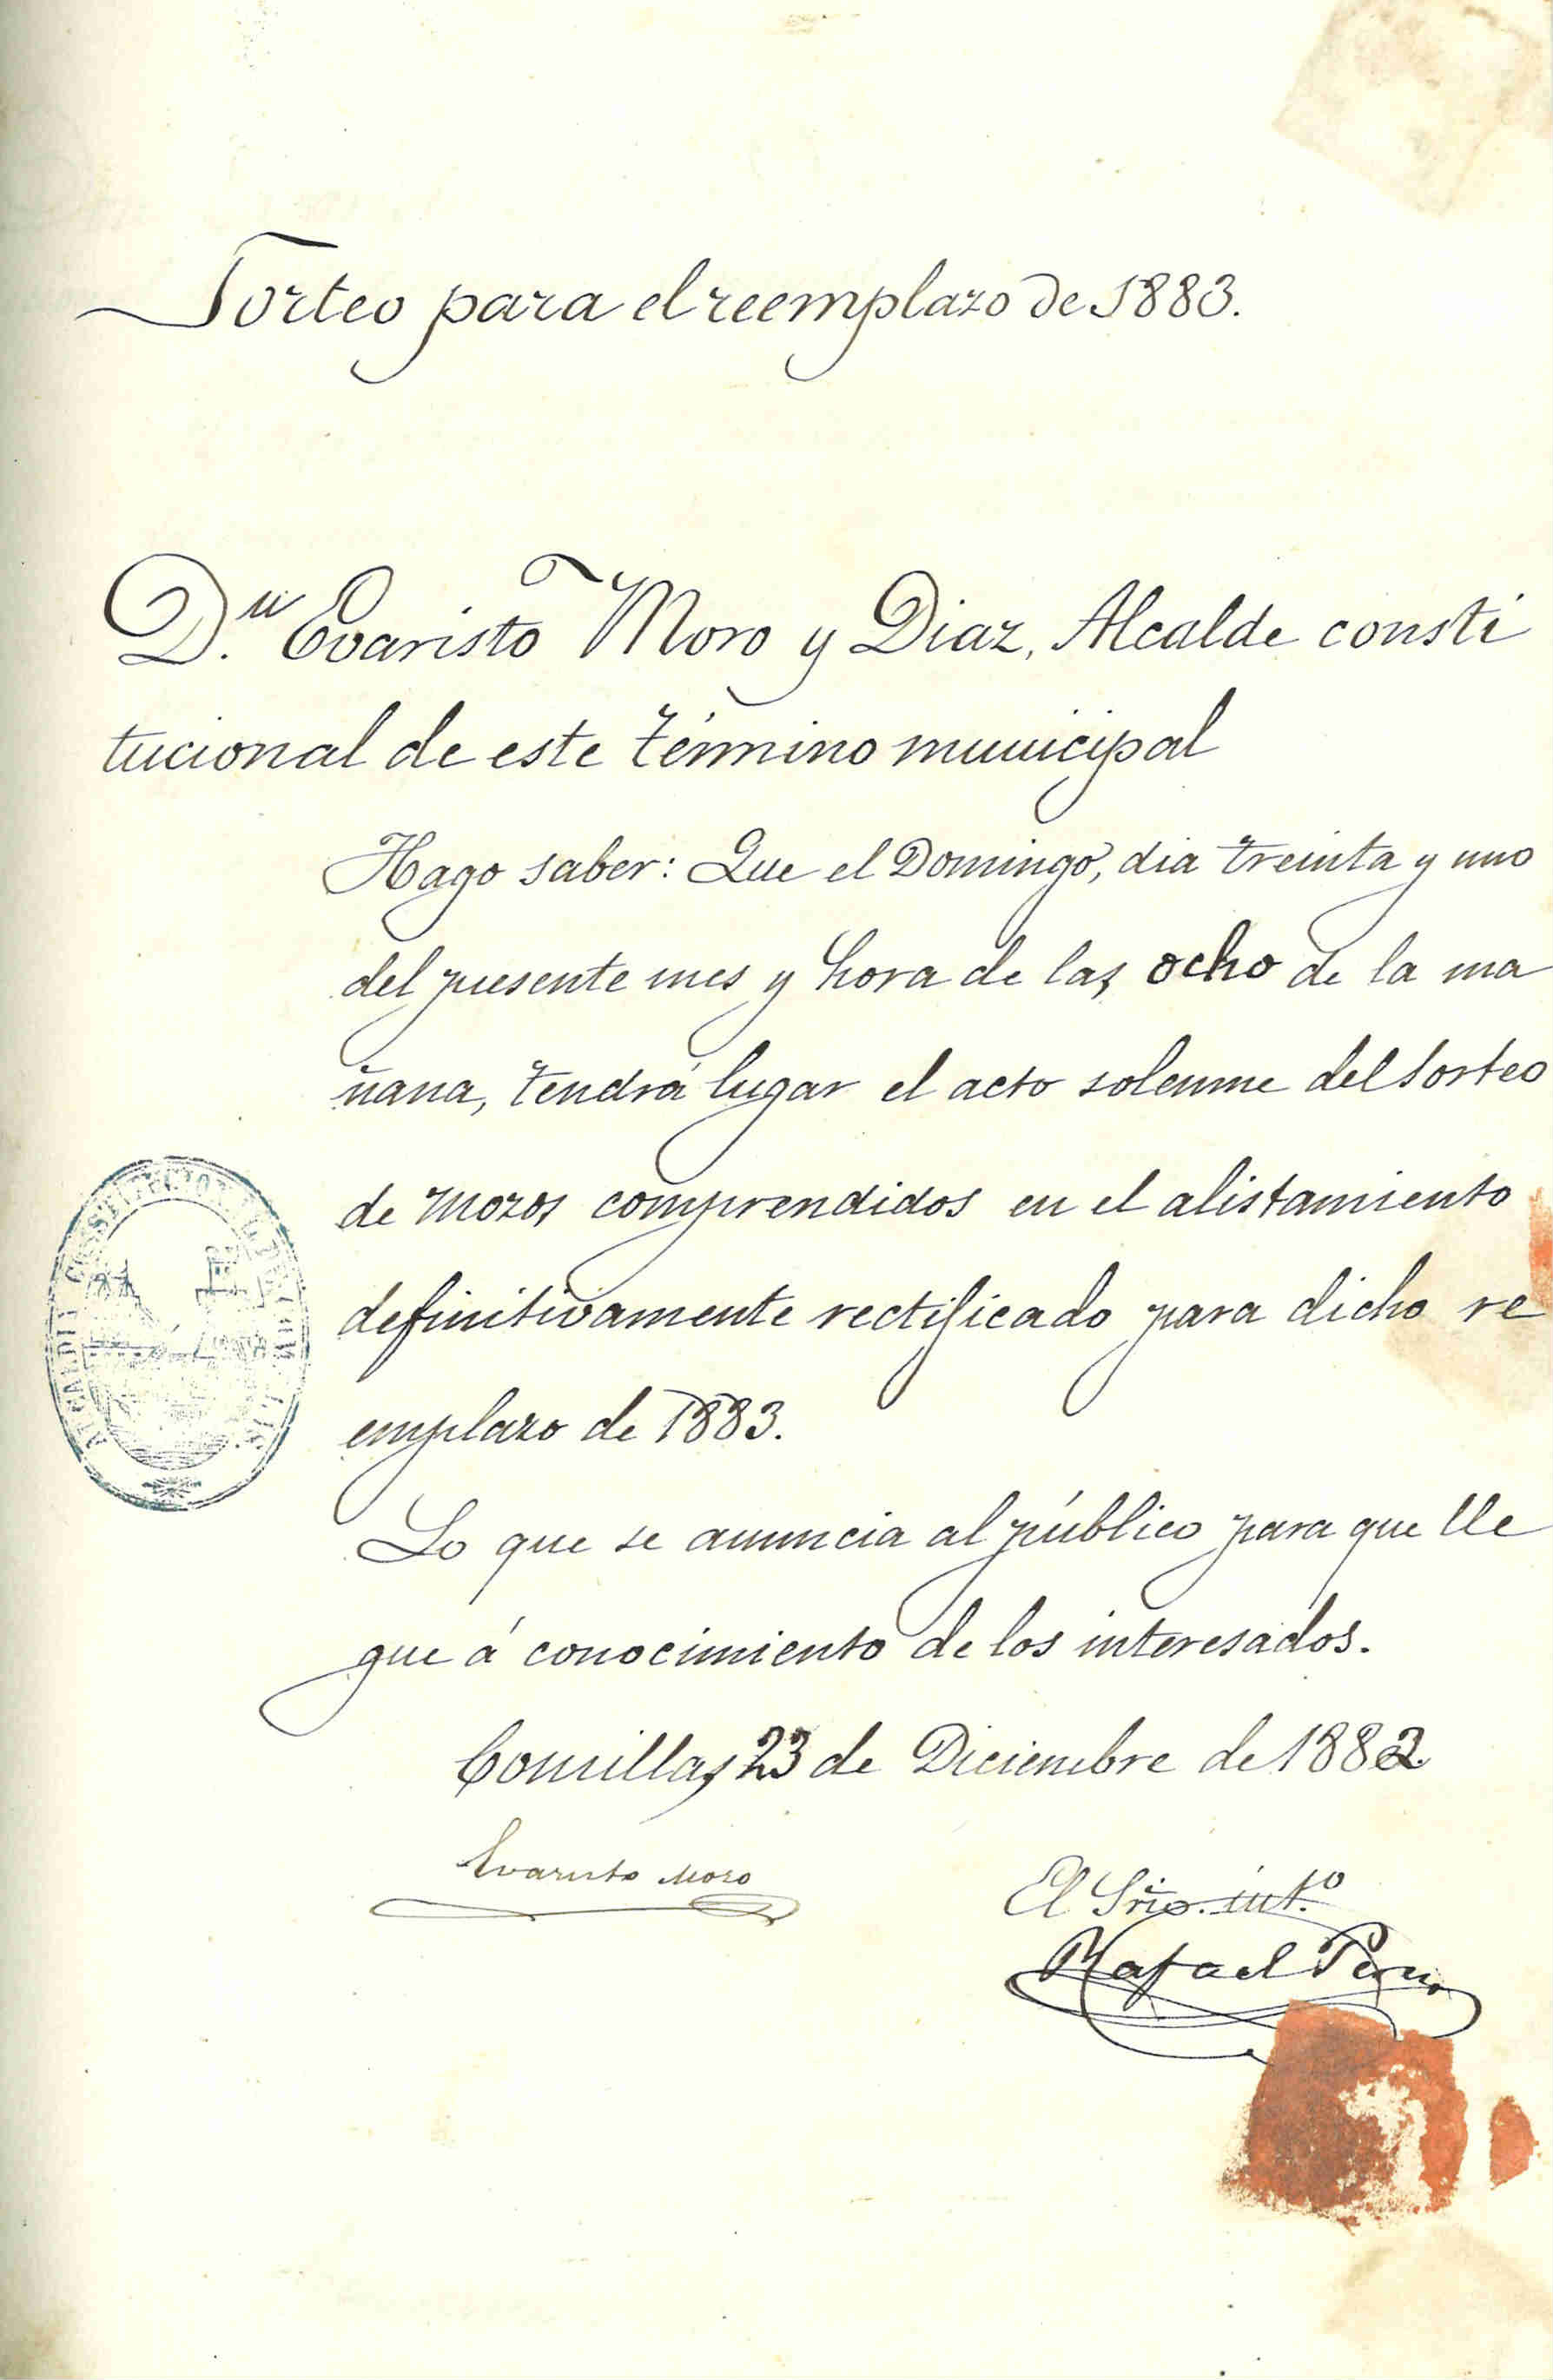 Sorteo para el reemplazo de 1883.
D.n Evaristo Moro y Diaz, Alcalde consti
tucional de este término municipal
Hago saber: Que el Domingo, dia treinta y uno
del presente mes y hora de las ocho de la ma
ñana, tendrá lugar el acto solemne del sorteo
de mozos comprendidos en el alistamiento
definitivamente rectificado para dicho re
emplazo de 1883.
ALCALDIA CONSTITUCIONAL DE COMILLAS
Lo que se anuncia al público para que lle
gue á conocimiento de los interesados.
Comillas 23 de Diciembre de 1882.
Evaristo Moro
El Srio. int.o
Rafael